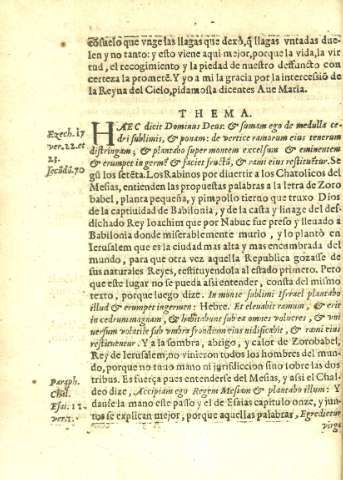 cõsuelo que vnge las llagas que dexò, q̃ llagas vntadas due-
len y no tanto: y esto viene aqui mejor, porque la vida, la vir
tud, el recogimiento y la piedad de nuestro deffuncto con
certeza la promete. Y yo a mi la gracia por la intercessiõ de
la Reyna del Cielo, pidamosla dicentes Aue Maria.
THEMA.
Ezech. 17
ver. 22. et
23.
Secũdũ. 70
HAEC dicit Dominus Deus: & sumam ego de medulla ce-
dri sublimis, & ponam: de vertice ramorum eius tenerum
distringam, & plantabo super montem excelsum & eminentem
& erumpet in germẽ & faciet fructũ, & rami eius restituẽtur. Se
gũ los setẽta. Los Rabinos por diuertir a los Chatolicos del
Mesias, entienden las propuestas palabras a la letra de Zoro
babel, planta pequeña, y pimpollo tierno que truxo Dios
de la captiuidad de Babilonia, y de la casta y linage del des-
dichado Rey Ioachim que por Nabuc fue preso y lleuado a
Babilonia donde miserablemente murio, y lo plantò en
Ierusalem que es la ciudad mas alta y mas encumbrada del
mundo, para que otra vez aquella Republica gozasse de
sus naturales Reyes, restituyendola al estado primero. Pero
que este lugar no se pueda assi entender, consta del mismo
texto, porque luego dize. In monte sublimi Israel plantabo
illud & erumpet in germen: Hebre. Et eleuabit ramum, & erit
in cedrum magnam, & habitabunt sub ea omnes volucres, & vni
uersum volatile sub vmbra frondium eius nidificabit, & rami eius
restituentur. Y a la sombra, abrigo, y calor de Zorobabel,
Rey de Ierusalem, no vinieron todos los hombres del mun-
do, porque no tuuo mano ni jurisdiccion sino sobre las dos
tribus. Es fuerça pues entenderse del Mesias, y assi el Chal-
Paraph.
Chal.
deo dize, Accipiam ego Regem Mesiam & plantabo illum: Y
Esai. 11.
ver. 1.
danse la mano este passo y el de Esaias capitulo onze, y jun-
tos se explican mejor, porque aquellas palabras, Egredietur
virga